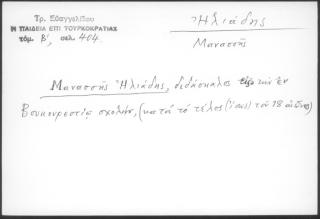 Τρ. Εὐαγγελίδου
Η ΠΑΙΔΕΙΑ ΕΠΙ ΤΟΥΡΚΟΚΡΑΤΙΑΣ
τόμ. Β', σελ. 404.
Ἠλιάδης
Μανασσῆς
Μανασσῆς Ἠλιάδης, διδάσκαλος εἰς τὴν ἐν
Βουκουρεστίῳ σχολήν, (κατὰ τὸ τέλος (ἴσως) τοῦ 18 αἰῶνος)